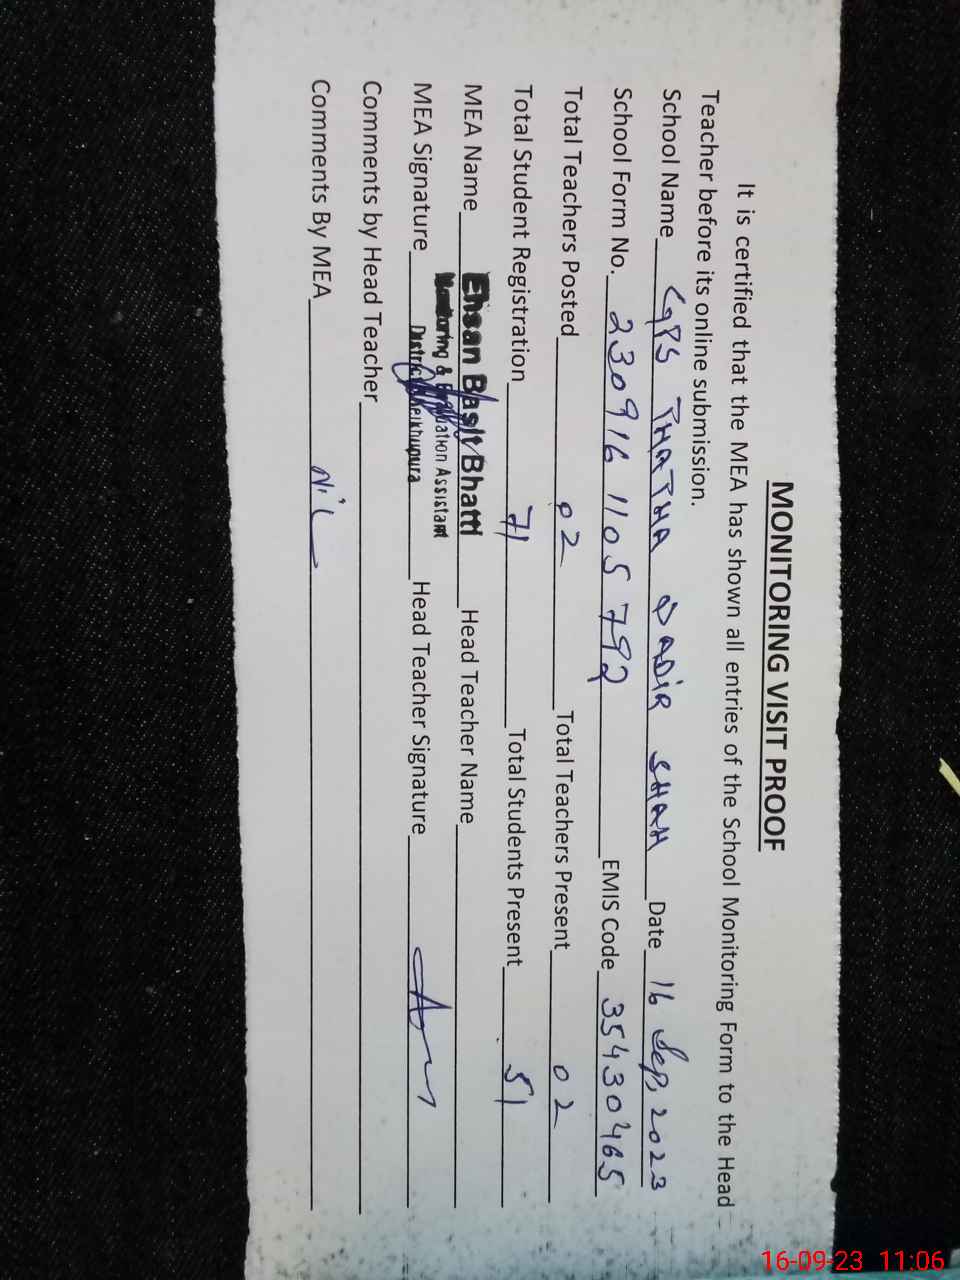 MONITORING VISIT PROOF
It is certified that the MEA has shown all entries of the School Monitoring Form to the Head
Teacher before its online submission.
School Name GPS THATHA QADIR SHAH Date 16 Sep, 2023
School Form No. 230916 1105792 EMIS Code 35430465
Total Teachers Posted 02 Total Teachers Present 02
Total Student Registration 71 Total Students Present 51
MEA Name Ehsan Basit Bhatti Head Teacher Name
Monitoring & Evaluation Assistant
MEA Signature District Sheikhupura Head Teacher Signature
Comments by Head Teacher
Comments By MEA Nil
16-09-23 11:06